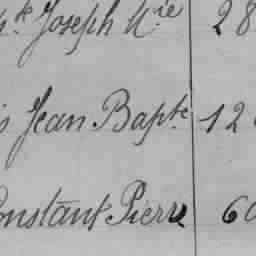 Joseph M.ie 28
Jean Bapt.e 12
Constant Pierre 60